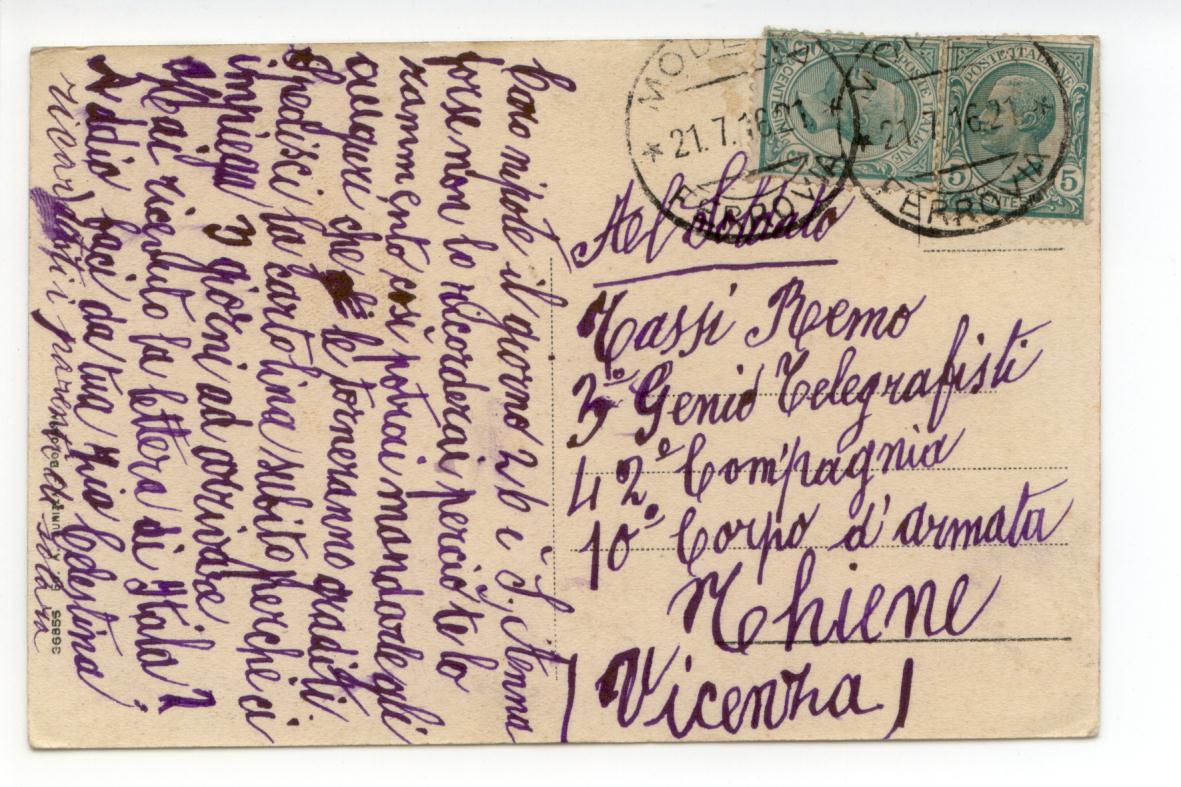 Caro nipote il giorno 26 è S. Anna
forse non lo ricorderai perciò te lo
rammento così potrai mandarle gli
auguri che le torneranno graditi
spedisci la cartolina subito perchè ci
impiega 3 giorni ad arrivare
Hai ricevuto la lettera di Itala?
Addio baci da tua zia Celestina
ricordati i parenti
36855
MODENA
FERROVIA
* 21.7.16.21 *
MODENA
FERROVIA
* 21.7.16.21 *
POSTE ITALIANE
CENTESIMI
POSTE ITALIANE
5 5
CENTESIMI
Al Soldato
Tassi Remo
3º Genio Telegrafisti
42º Compagnia
10º Corpo d'armata
Thiene
(Vicenza)